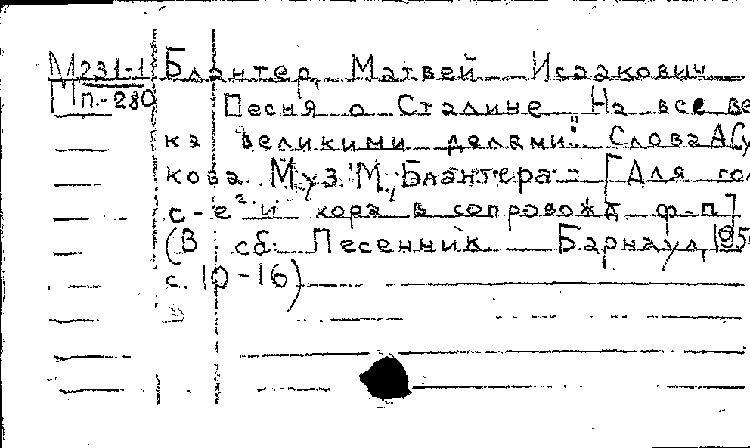 М231-1 Блантер, Матвей Исаакович
Мп.-280 Песня о Сталине "На все ве
ка великими делами". Слова А Су
кова Муз. М. Блантера - [Для гол
с-е и хора в сопровожд ф-п]
(В сб: Песенник Барнаул, 195
с. 10-16)